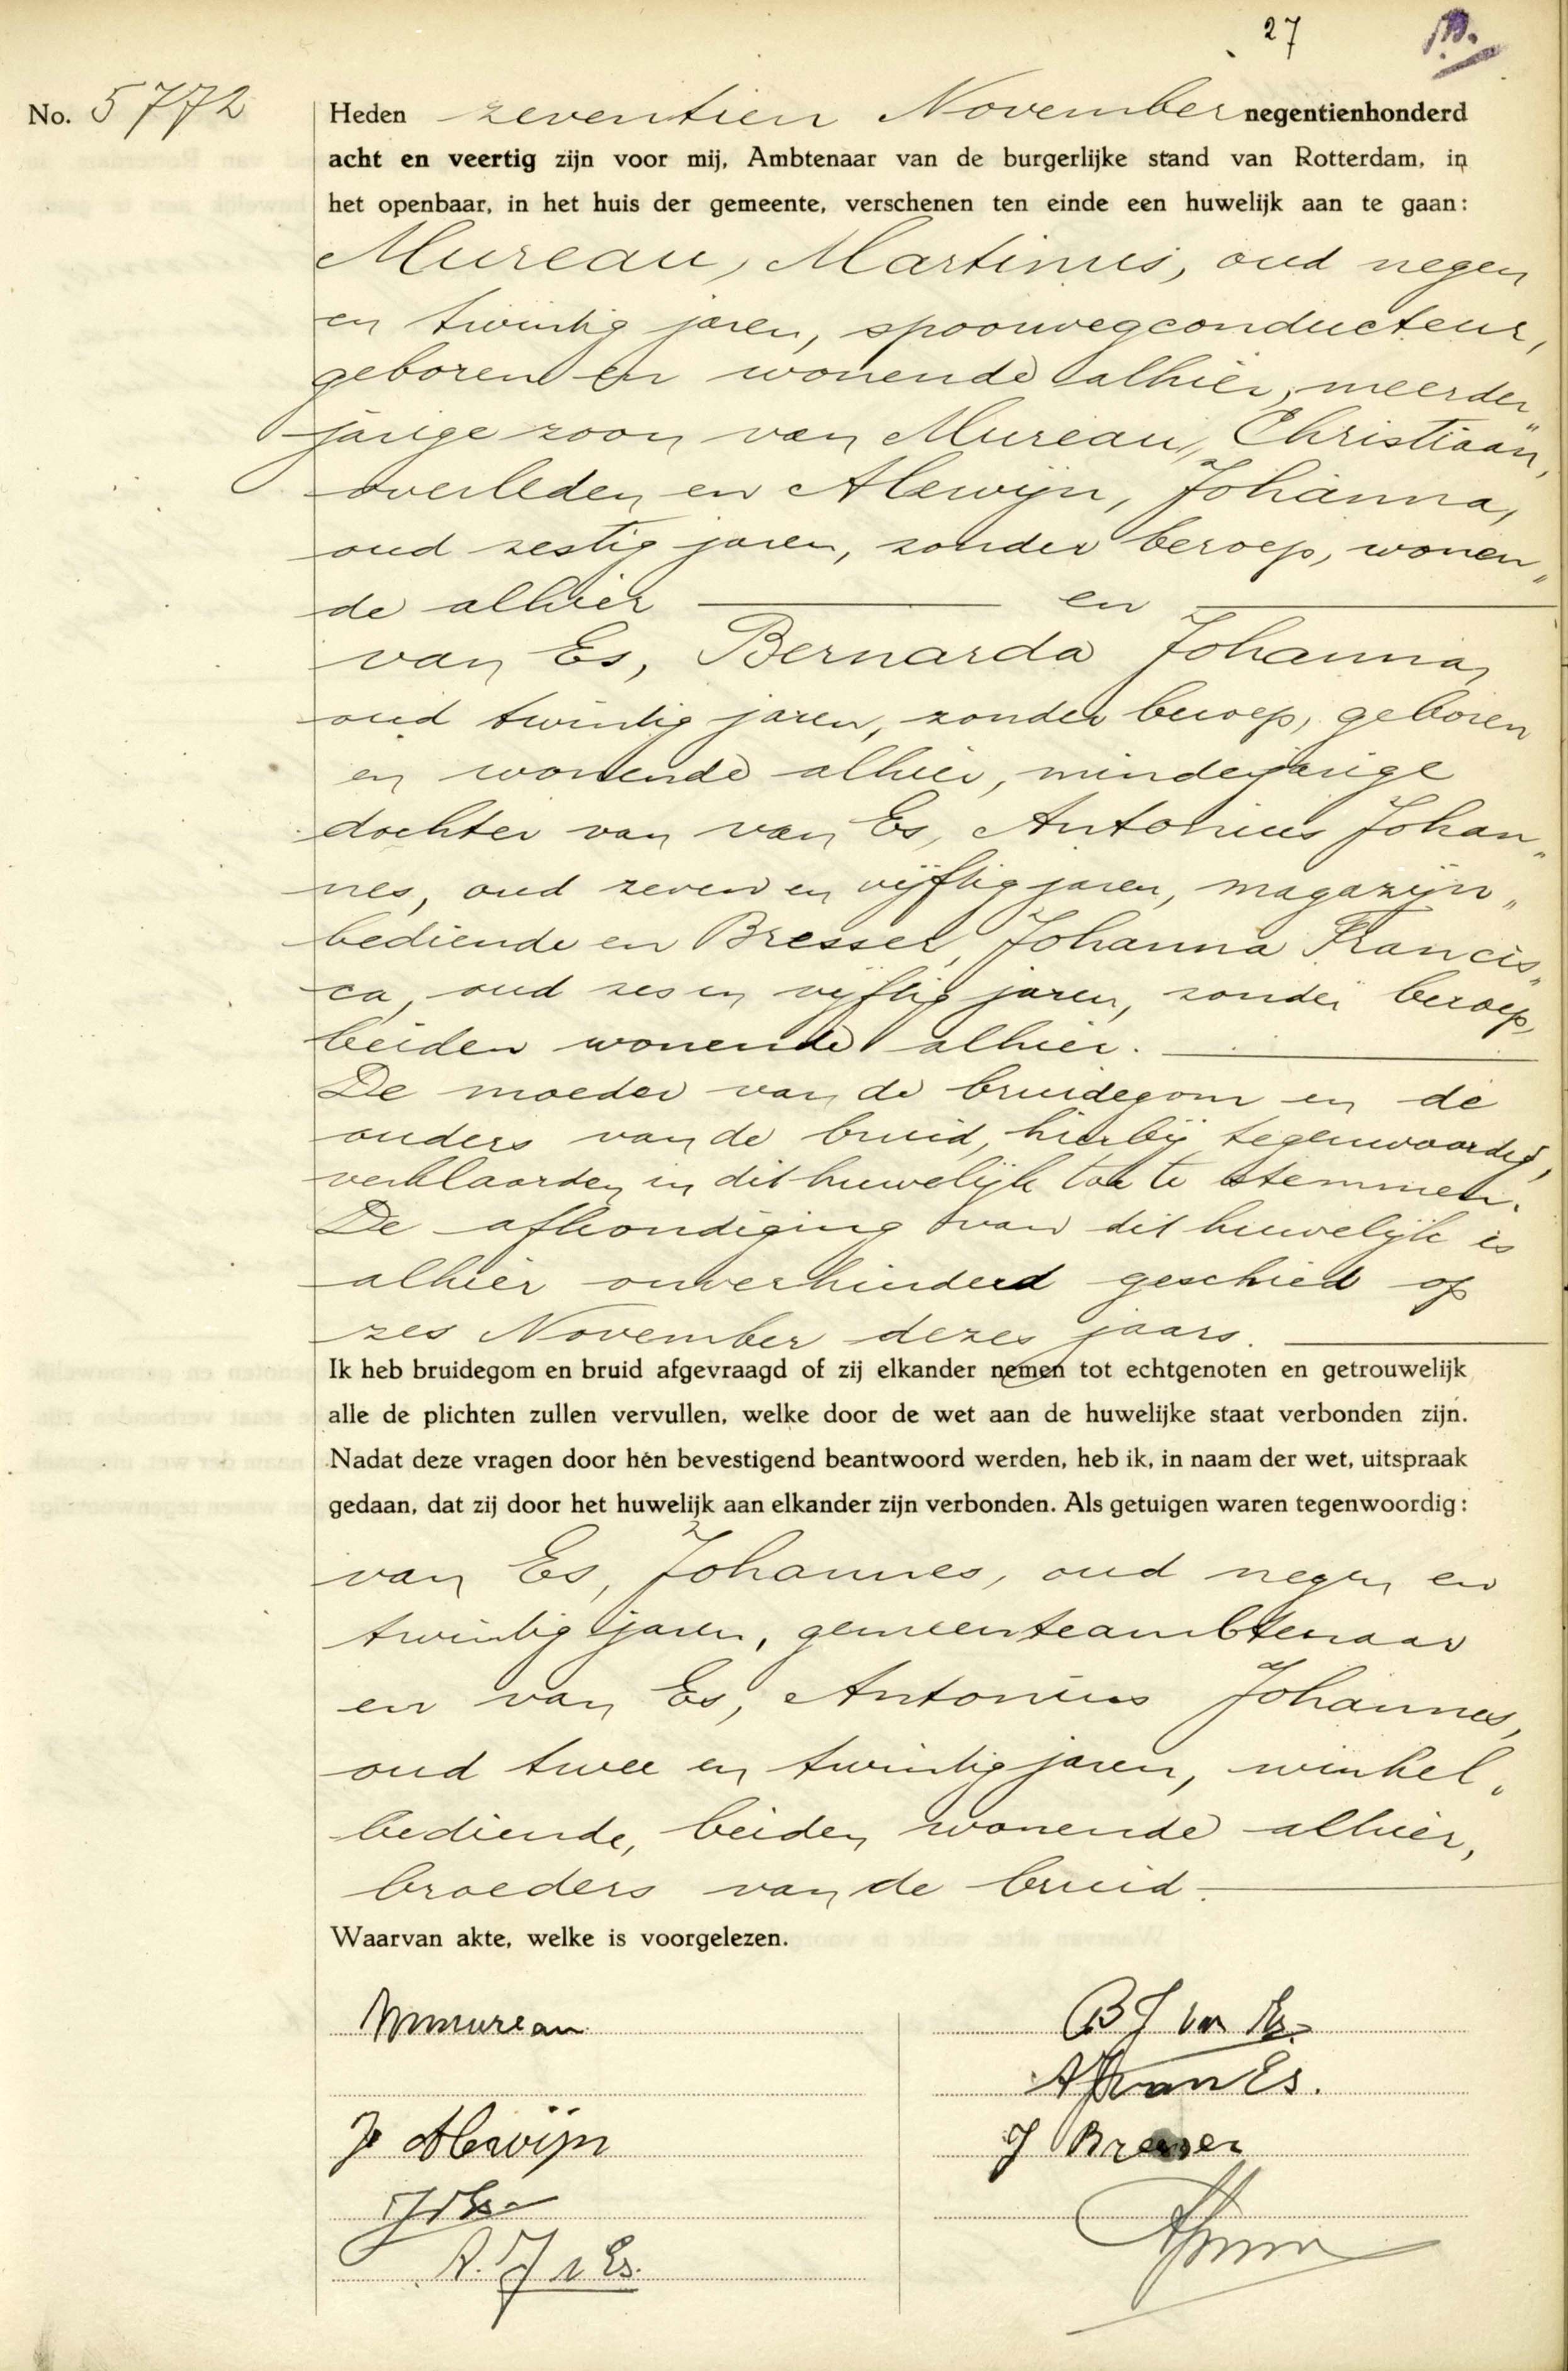 27
No. 5772
Heden zeventien November negentienhonderd
acht en veertig zijn voor mij, Ambtenaar van de burgerlijke stand van Rotterdam, in
het openbaar, in het huis der gemeente, verschenen ten einde een huwelijk aan te gaan:
Mureau, Martinus, oud negen
en twintig jaren, spoorwegconducteur,
geboren en wonende alhier, meerder„
jarige zoon van Mureau, Christiaan,
overleden en Alewijn, Johanna,
oud zestig jaren, zonder beroep, wonen„
de alhier en
van Es, Bernarda Johanna,
oud twintig jaren, zonder beroep, geboren
en wonende alhier, minderjarige
dochter van van Es, Antonius Johan„
nes, oud zeven en vijftig jaren, magazijn„
bediende en Bresser, Johanna Francis„
ca, oud zes en vijftig jaren, zonder beroep,
beiden wonende alhier.
De moeder van de bruidegom en de
ouders van de bruid, hierbij tegenwoordig,
verklaarden in dit huwelijk toe te stemmen.
De afkondiging van dit huwelijk is
alhier onverhinderd geschied op
zes November dezes jaars.
Ik heb bruidegom en bruid afgevraagd of zij elkander nemen tot echtgenoten en getrouwelijk
alle de plichten zullen vervullen, welke door de wet aan de huwelijke staat verbonden zijn.
Nadat deze vragen door hen bevestigend beantwoord werden, heb ik, in naam der wet, uitspraak
gedaan, dat zij door het huwelijk aan elkander zijn verbonden. Als getuigen waren tegenwoordig:
van Es, Johannes, oud negen en
twintig jaren, gemeenteambtenaar
en van Es, Antonius Johannes,
oud twee en twintig jaren, winkel„
bediende, beiden wonende alhier,
broeders van de bruid.
Waarvan akte, welke is voorgelezen.
M Mureau
B J van Es.
AJ van Es.
Jo Alewijn
J Bresser
J v Es
A. J v Es.